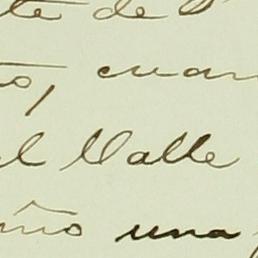 te de
to, cuan
el Valle
ño una